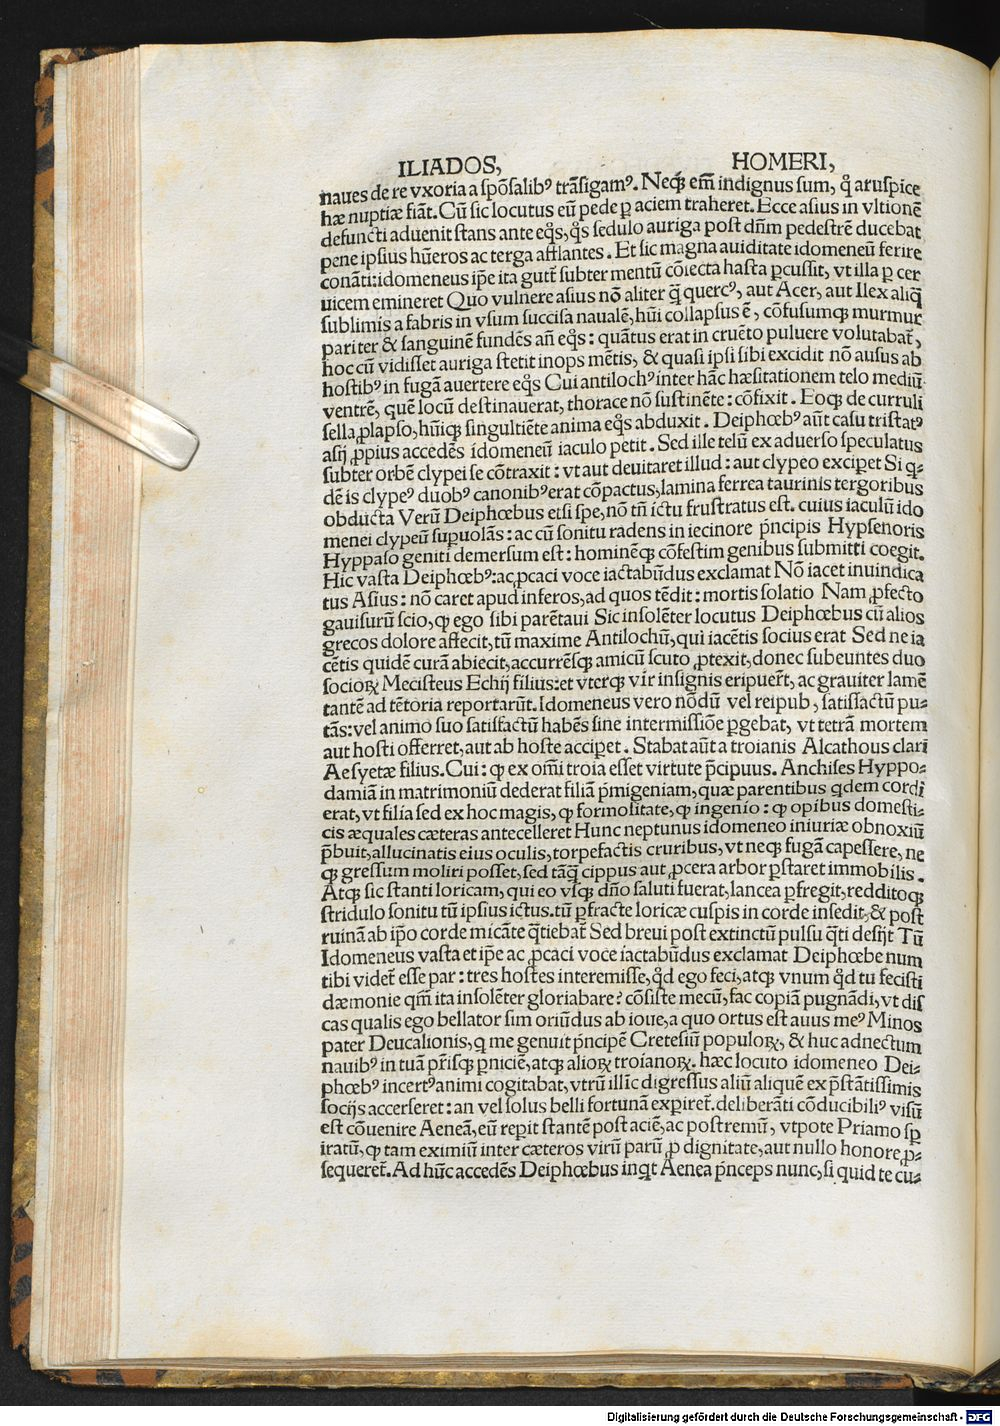 ILIADOS, HOMERI,
naues de re vxoria a spõsalibꝰ trãsigamꝰ. Neqꝫ em̃ indignus sum, q̃ aruspice
hæ nuptiæ fiãt. Cũ sic locutus eũ pede ꝑ aciem traheret. Ecce asius in vltionẽ
defuncti aduenit stans ante eq̃s, q̃s sedulo auriga post dñm pedestrẽ ducebat
pene ipsius hũeros ac terga afflantes. Et sic magna auiditate idomeneũ ferire
conãti: idomeneus ip̃e ita gutt̃ subter mentũ cõiecta hasta ꝑcussit, vt illa ꝑ cer
uicem emineret Quo vulnere asius nõ aliter q̃ quercꝰ, aut Acer, aut Ilex aliq̃
sublimis a fabris in vsum succisa naualẽ, hũi collapsus ẽ, cõfusumqꝫ murmur
pariter & sanguinẽ fundẽs añ eq̃s: quãtus erat in cruẽto puluere volutabat̃,
hoc cũ vidisset auriga stetit inops mẽtis, & quasi ipsi sibi excidit nõ ausus ab
hostibꝰ in fugã auertere eq̃s Cui antilochꝰ inter hãc hæsitationem telo mediũ
ventrẽ, quẽ locũ destinauerat, thorace nõ sustinẽte: cõfixit. Eoqꝫ de curruli
sella ꝓlapso, hũiqꝫ singultiẽte anima eq̃s abduxit. Deiphœbꝰ aũt casu tristatꝰ
asij ꝓpius accedẽs idomeneũ iaculo petit. Sed ille telũ ex aduerso speculatus
subter orbẽ clypei se cõtraxit: vt aut deuitaret illud: aut clypeo excip̃et Si q̃⸗
dẽ is clypeꝰ duobꝰ canonibꝰ erat cõpactus, lamina ferrea taurinis tergoribus
obducta Verũ Deiphœbus etsi spe, nõ tñ ictu frustratus est. cuius iaculũ ido
menei clypeũ suꝑuolãs: ac cũ sonitu radens in iecinore p̃ncipis Hypsenoris
Hyppaso geniti demersum est: hominẽqꝫ cõfestim genibus submitti coegit.
Hic vasta Deiphœbꝰ: ac ꝓcaci voce iactabũdus exclamat Nõ iacet inuindica
tus Asius: nõ caret apud inferos, ad quos tẽdit: mortis solatio Nam ꝓfecto
gauisurũ scio, ꝙ ego sibi parẽtaui Sic insolẽter locutus Deiphœbus cũ alios
grecos dolore affecit, tũ maxime Antilochũ, qui iacẽtis socius erat Sed ne ia
cẽtis quidẽ curã abiecit, accurrẽsqꝫ amicũ scuto ꝓtexit, donec subeuntes duo
socioꝝ Mecisteus Echij filius: et vterqꝫ vir insignis eripuer̃t, ac grauiter lamẽ
tantẽ ad tẽtoria reportarũt. Idomeneus vero nõdũ vel reipub, satisfactũ pu⸗
tãs: vel animo suo satisfactũ habẽs sine intermissiõe ꝑgebat, vt tetrã mortem
aut hosti offerret, aut ab hoste accip̃et. Stabat aũt a troianis Alcathous clari
Aesyetæ filius. Cui: ꝙ ex om̃i troia esset virtute p̃cipuus. Anchises Hyppo⸗
damiã in matrimoniũ dederat filiã p̃migeniam, quæ parentibus q̃dem cordi
erat, vt filia sed ex hoc magis, ꝙ formositate, ꝙ ingenio: ꝙ opibus domesti⸗
cis æquales cæteras antecelleret Hunc neptunus idomeneo iniuriæ obnoxiũ
p̃buit, allucinatis eius oculis, torpefactis cruribus, vt neqꝫ fugã capessere, ne
qꝫ gressum moliri posset, sed tãq̃ cippus aut ꝓcera arbor p̃staret immobilis.
Atqꝫ sic stanti loricam, qui eo vsqꝫ dño saluti fuerat, lancea ꝑfregit, redditoqꝫ
stridulo sonitu tũ ipsius ictus. tũ ꝑfracte loricæ cuspis in corde insedit, & post
ruinã ab ip̃o corde micãte q̃tiebat̃ Sed breui post extinctũ pulsu q̃ti desijt Tũ
Idomeneus vasta et ip̃e ac ꝓcaci voce iactabũdus exclamat Deiphœbe num
tibi videt̃ esse par: tres hostes interemisse, q̃d ego feci, atqꝫ vnum q̃d tu fecisti
dæmonie qm̃ ita insolẽter gloriabare? cõsiste mecũ, fac copiã pugnãdi, vt dis
cas qualis ego bellator sim oriũdus ab ioue, a quo ortus est auus meꝰ Minos
pater Deucalionis, q̃ me genuit p̃ncipẽ Cretesiũ populoꝝ, & huc adnectum
nauibꝰ in tuã pr̃isqꝫ ꝑniciẽ, atqꝫ alioꝝ troianoꝝ. hæc locuto idomeneo Dei⸗
phœbꝰ incertꝰ animi cogitabat, vtrũ illic digressus aliũ aliquẽ ex p̃stãtissimis
socijs accerseret: an vel solus belli fortunã exꝑiret̃. deliberãti cõducibiliꝰ visũ
est cõuenire Aeneã, eũ reꝑit stantẽ post aciẽ, ac postremũ, vtpote Priamo sꝑ
iratũ, ꝙ tam eximiũ inter cæteros virũ parũ ꝓ dignitate, aut nullo honore ꝓ⸗
sequeret̃. Ad hũc accedẽs Deiphœbus inq̃t Aenea p̃nceps nunc, si quid te cu⸗
Digitalisierung gefördert durch die Deutsche Forschungsgemeinschaft - DFG